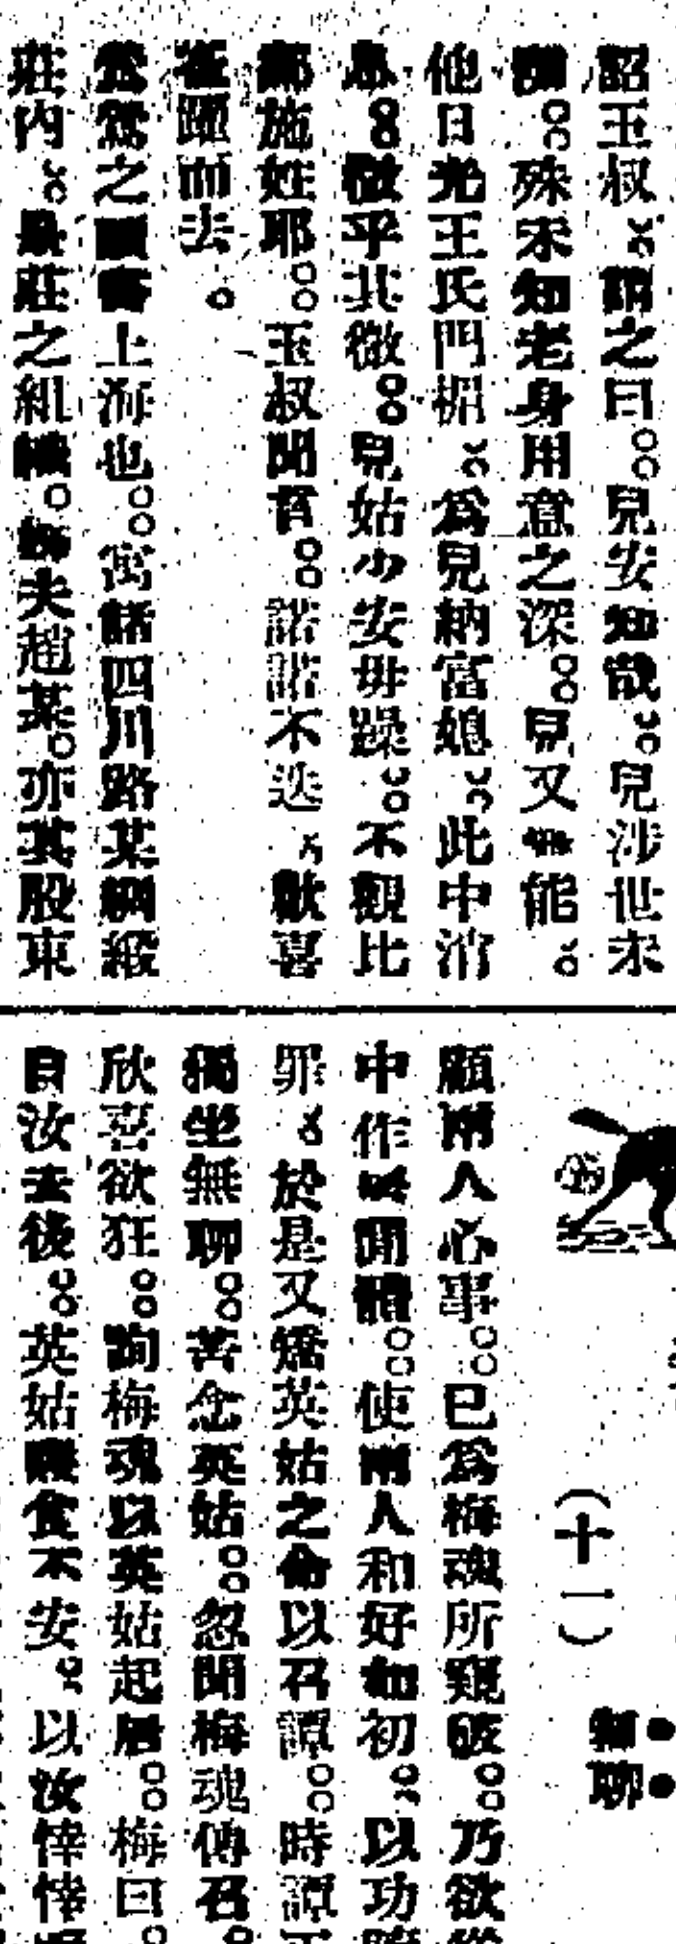 詔玉叔。謂之曰。兒安知哉。兒涉世未
殊未知老身用意之深。兒又能。
他日光王氏門楣。爲兒納富媳。此中消
息。微乎其微。兒姑少安毋躁。不觀比
施姓耶。玉叔聞言。諾諾不迭。歡喜
雀躍而去。
鴛鴦之 上海也。寓諸四川路某綢緞
莊內。莊之組織。夫趙某。亦其股東
(十一)
聊
顧兩人心事。已爲梅魂所窺破。乃欲從
中作 使兩人和好如初。以功贖
罪。於是又矯英姑之命以召譚。時譚正
獨坐無聊。苦念英姑。忽聞梅魂傳召。
欣喜欲狂。詢梅魂以英姑起居。梅曰。
自汝去後。英姑寢食不安。以汝悻悻